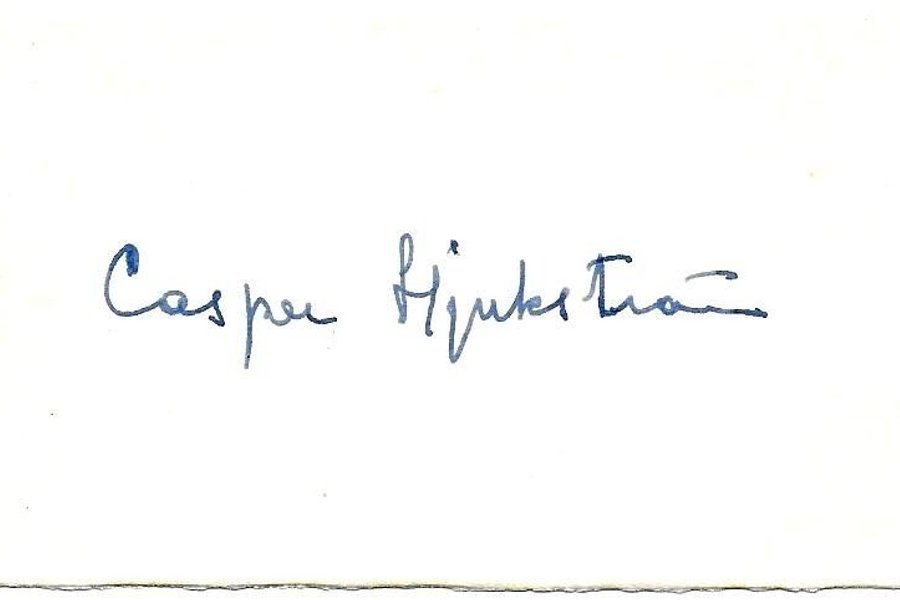 Casper Hjukström